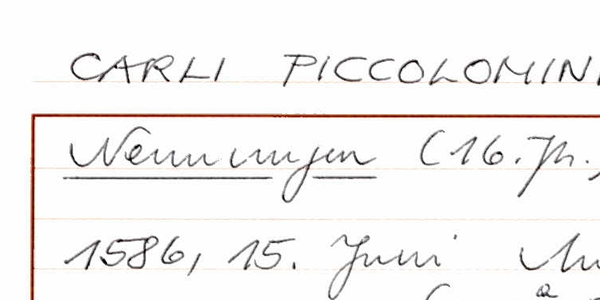 CARLI PICCOLOMINI
Nennungen (16. Jh.)
1586, 15. Juni